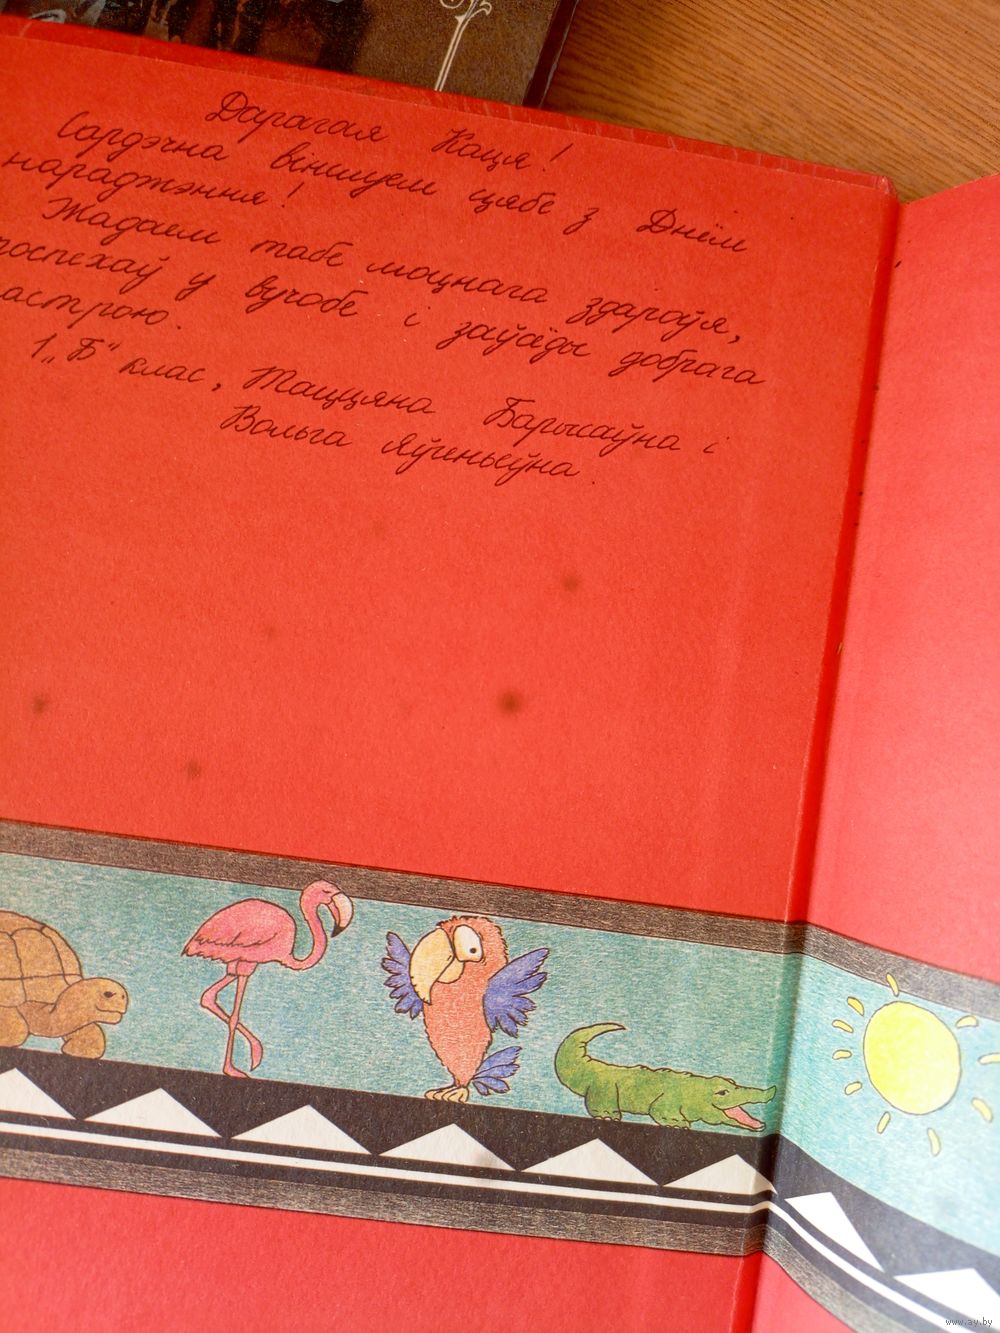 Дарагая Каця!
Сардэчна віншуем цябе з Днём
нараджэння!
Жадаем табе моцнага здароўя,
поспехаў у вучобе і заўсёды добрага
настрою.
1 „Б“ клас, Таццяна Барысаўна і
Вольга Яўгеньеўна.
www.ay.by